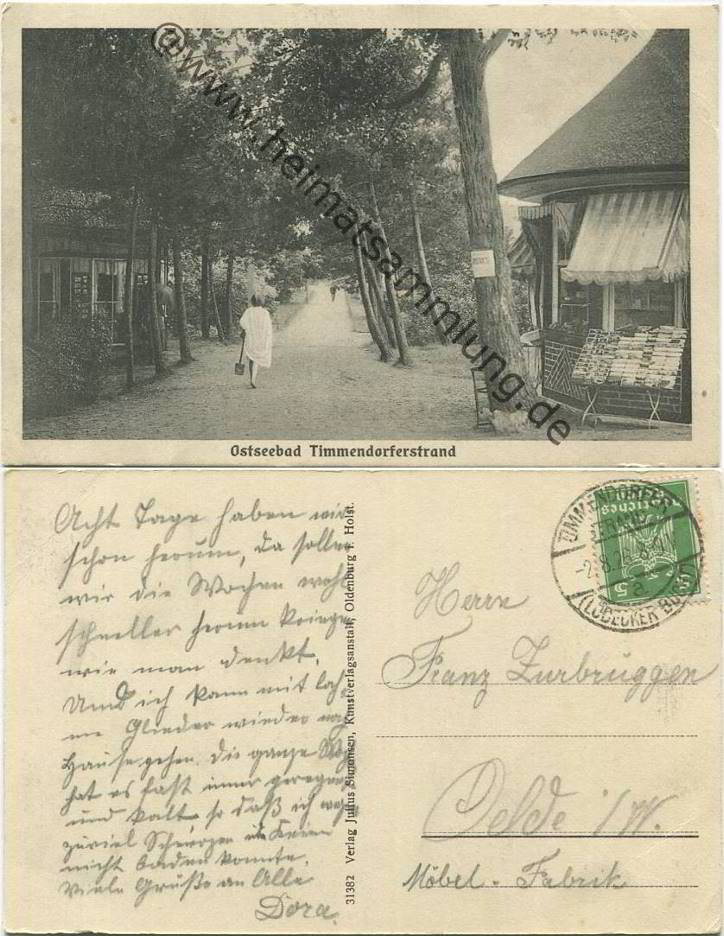 @www.heimatsammlung.de
Ostseebad Timmendorferstrand
Acht Tage haben wir
schon herum, da sollen
wir die Wochen wohl
schneller herum kriegen
wie man denkt.
Und ich kann mit lah-
me Glieder wieder nach
Hause gehen. Die ganze
hat es fast immer geregnet
und kalt so daß ich weg.
zuviel Schmerzen
nicht baden konnte.
Viele Grüße an Alle
Dora.
31382 Verlag Julius Simonsen, Kunstverlagsanstalt, Oldenburg i. Holst.
TIMMENDORFER
STRAND
-2.8.
a
(LÜBECKER BU
Deutsches Reich
5 5
Herrn
Franz Zurbrüggen
Oelde i/W.
Möbel-Fabrik